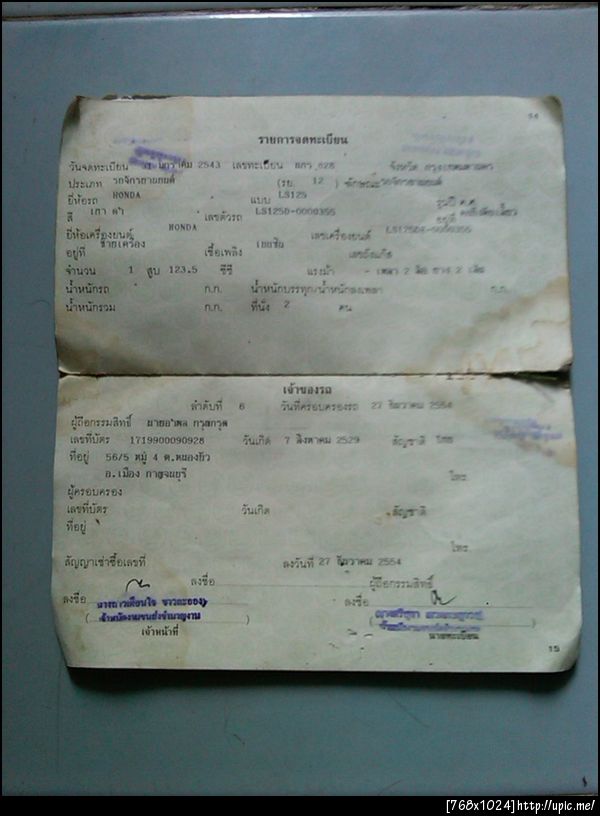 14
รายการจดทะเบียน
วันจดทะเบียน 31 มกราคม 2543 เลขทะเบียน 628 จังหวัด กรุงเทพมหานคร
ประเภท รถจักรยานยนต์ (รย. 12 ) ลักษณะ รถจักรยานยนต์
ยี่ห้อรถ HONDA แบบ LS125 รุ่นปี ค.ศ.
สี เทา ดำ เลขตัวรถ LS125D-0000355 อยู่ที่
ยี่ห้อเครื่องยนต์ HONDA เลขเครื่องยนต์ LS125DE-0000355
อยู่ที่ ซ้ายเครื่อง เชื้อเพลิง เบนซิน เลขถังแก๊ส
จำนวน 1 สูบ 123.5 ซีซี แรงม้า - เพลา 2 ล้อ ยาง 2 เส้น
น้ำหนักรถ ก.ก. น้ำหนักบรรทุก/น้ำหนักลงเพลา ก.ก.
น้ำหนักรวม ก.ก. ที่นั่ง 2 คน
เจ้าของรถ
ลำดับที่ 6 วันที่ครอบครองรถ 27 ธันวาคม 2554
ผู้ถือกรรมสิทธิ์
เลขที่บัตร 1719900090928 วันเกิด 7 สิงหาคม 2529 สัญชาติ ไทย
ที่อยู่ 56/5 หมู่ 4 ต.หนองบัว
อ.เมือง กาญจนบุรี โทร
ผู้ครอบครอง
เลขที่บัตร วันเกิด สัญชาติ
ที่อยู่
โทร
สัญญาเช่าซื้อเลขที่ ลงวันที่ 27 ธันวาคม 2554
ลงชื่อ ผู้ถือกรรมสิทธิ์
ลงชื่อ ลงชื่อ
( เจ้าพนักงานขนส่งชำนาญงาน ) ( )
เจ้าหน้าที่ นายทะเบียน
15
[768x1024]http://upic.me/